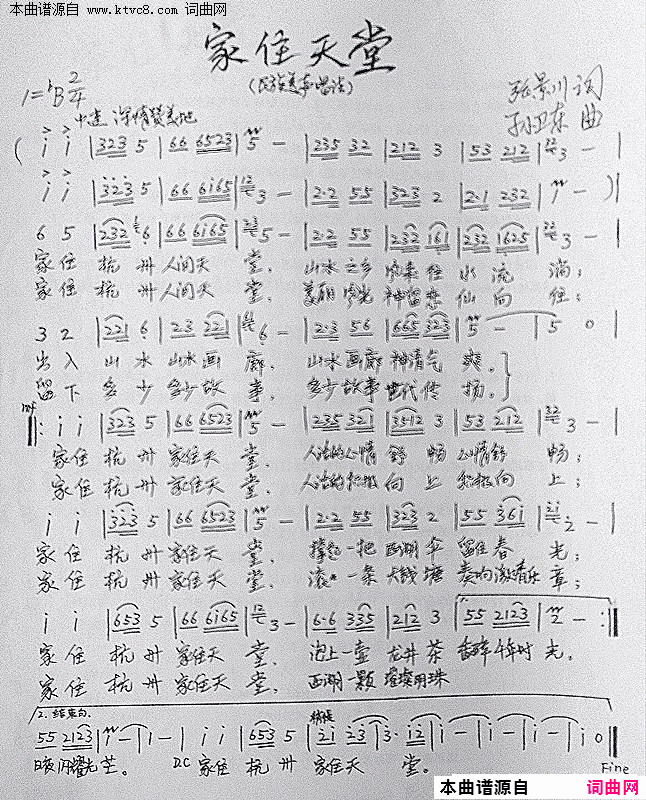 本曲谱源自 www.ktvc8.com 词曲网
家住天堂
(民族美声唱法)
1=ᵇB 2/4
张景川 词
孙卫东 曲
中速 深情赞美地
( i i | 323 5 | 66 6523 | 5 - | 235 32 | 212 3 | 53 212 | 3 - |
i i | 323 5 | 66 6i65 | 3 - | 2·2 55 | 323 2 | 2·1 232 | i - ) |
6 5 | 232 6 | 66 6i65 | 5 - | 2·2 55 | 232 161 | 232 1625 | 3 - |
家住 杭州 人间天 堂, 山水之乡 水流淌;
家住 杭州 人间天 堂, 美丽 神 仙向往;
3 2 | 221 6 | 2·3 221 | 6 - | 2·3 56 | 665 323 | 5 - | 5 0 |
出入 山水 山水画 廊, 山水画廊 神清气 爽。
留下 多少 多少故 事, 多少故事 世代传 扬。
mf
i i | 323 5 | 66 6523 | 5 - | 235 321 | 3512 3 | 53 212 | 3 - |
家住 杭州 家住天 堂, 人活的心情 舒畅 心情舒 畅;
家住 杭州 家住天 堂, 人活的积极 向上 积极向 上;
i i | 323 5 | 66 6523 | 5 - | 2·2 55 | 323 2 | 55 36i | 2 - |
家住 杭州 家住天 堂, 撑起一把 西湖伞 留住春 光;
家住 杭州 家住天 堂, 滚 一条 大钱塘 奏响激情乐 章;
i i | 653 5 | 66 6i65 | 3 - | 6·6 335 | 212 3 | 55 2123 | 2 - :|
家住 杭州 家住天 堂, 泡上一壶 龙井茶 香醉午年时 光。
家住 杭州 家住天 堂, 西湖一颗 璀璨明珠
2. 结束句.
55 2123 | i - | i - | i i | 653 5 | 2i 23 | 3· i2 | i - | i - | i - | i 0 ||
日夜闪耀光 芒。 D.C 家住 杭州 家住天 堂。
Fine
本曲谱源自 词曲网